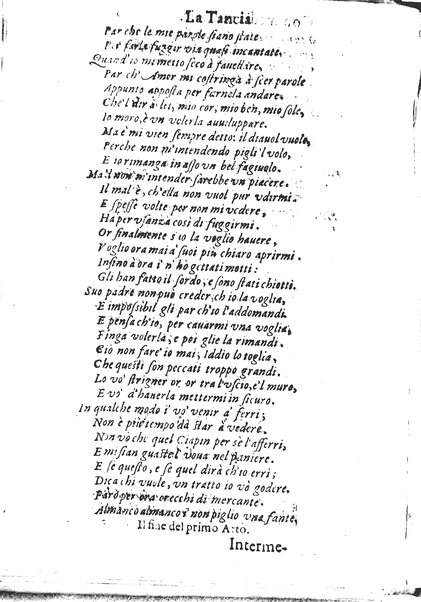 La Tancia
Par che le mie parole siano state,
Per farla fuggir via quasi incantate.
Quand'io mi metto seco à fauellare,
Par ch'Amor mi costringà à scer parole
Appunto apposta per farnela andare.
Che'l dir à lei, mio cor, mio ben, mio sole,
Io moro, è vn volerla auuiluppare.
Ma è mi vien sempre detto: il diauol vuole,
Perche non m'intendendo pigli'l volo,
E io rimanga in asso vn bel fagiuolo.
Ma'l non m'intender sarebbe vn piacere.
Il mal'è, ch'ella non vuol pur vdirmi.
E spesse volte per non mi vedere,
Ha per vsanza così di fuggirmi.
Or finalmente s'io la voglio hauere,
Voglio ora mai à suoi più chiaro aprirmi.
Infino à ora i' n'hò gettati motti:
Gli han fatto il sordo, e sono stati chiotti.
Suo padre non può creder, ch'io la voglia,
E impossibil gli par ch'io l'addomandi.
E pensa ch'io, per cauarmi vna voglia,
Finga volerla; e poi glie la rimandi.
Ciò non fare' io mai; Iddio lo toglia,
Che questi son peccati troppo grandi.
Lo vo' strigner or, or tra l'vscio, e'l muro,
E vo' d'hauerla mettermi in sicuro.
In qualche modo i vo' venir a' ferri;
Non è più tempo da star à vedere.
Nin vò che quel Ciapin per sè l'afferri,
E mi sian guaste l'voua nel paniere.
E se questo, e se quel dirà ch'io erri;
Dica chi vuole, vn tratto io vò godere.
Farò per ora orecchi di mercante.
Almanco almanco i non piglio vna fante.
Il fine del primo Atto.
Interme-